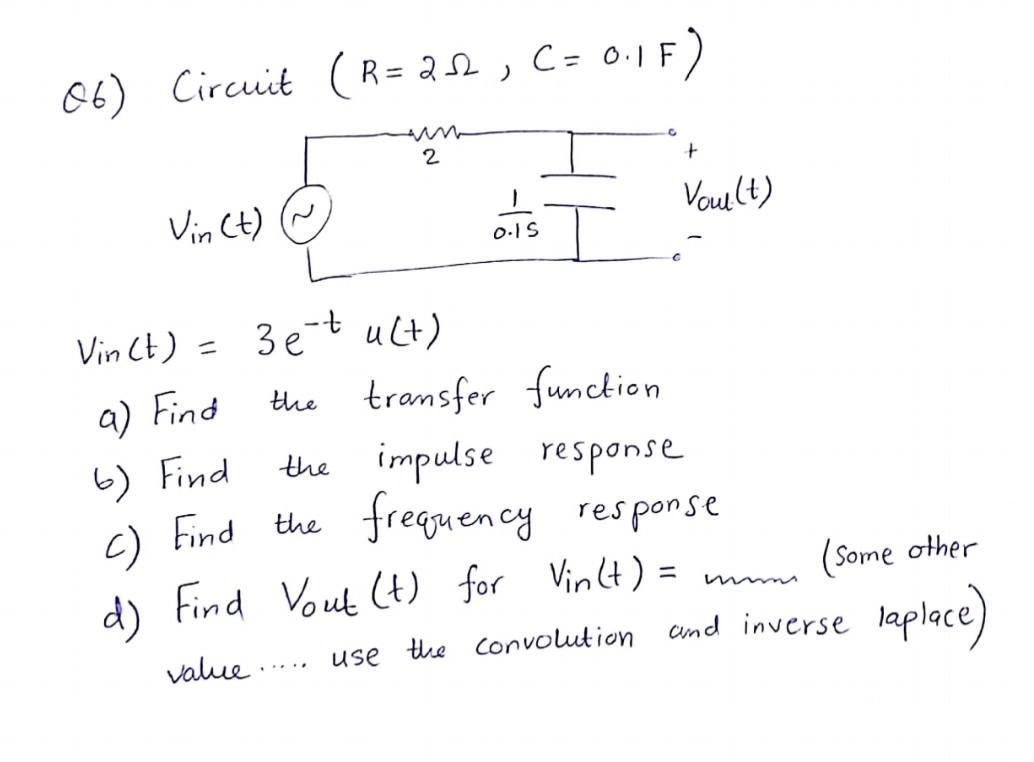 Q6) Circuit (R = 2Ω, C = 0.1 F)
2
+
Vin(t)
1
0.1S
Vout(t)
-
Vin(t) = 3e^-t u(t)
a) Find the transfer function
b) Find the impulse response
c) Find the frequency response
d) Find Vout(t) for Vin(t) = (some other
value ..... use the convolution and inverse laplace)